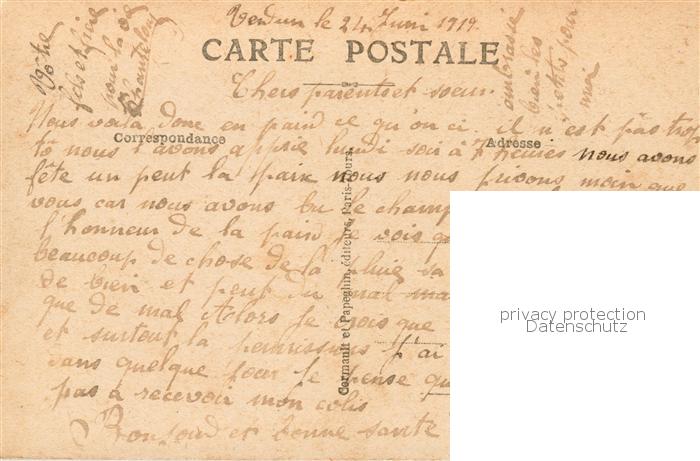 Verdun le 24 Juin 1919.
CARTE POSTALE
Chers parents et soeur
Nous voilà donc en paix ce qu'on ci il n'est pas trop
Correspondance
Adresse
to nous l'avons apprie lundi soir à 7 heures nous avons
fête un peut la Paix nous nous buvons moin que
vous car nous avons bu le champ
l'honneur de la paix je vois q
beaucoup de chose de la pluie sa
de bien et peut du mal ma
que de mal Alors je crois que
et surtout la j'ai
dans quelque jour je pense qu
pas à recevoir mon colis
Bonsoir et bonne santé
Vôtre
fils et frère
pour la vie
Chanteloup
embrassé
bien les
petits pour
moi
Cormault et Papeghin, éditeurs, Paris-Tours
privacy protection
Datenschutz